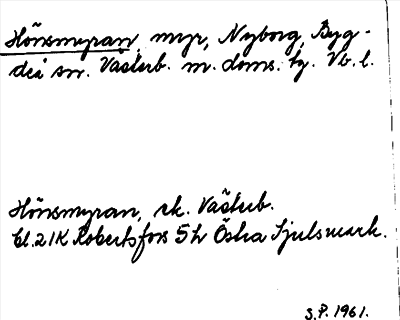 Hönsmyran, myr, Nyborg, Byg-
deå sn. Västerb. m. doms. tg. Vb. l.
Hönsmyran, rk. Västerb.
bl. 21K Robertsfors 5h Östra Sjulsmark.
S.P. 1961.